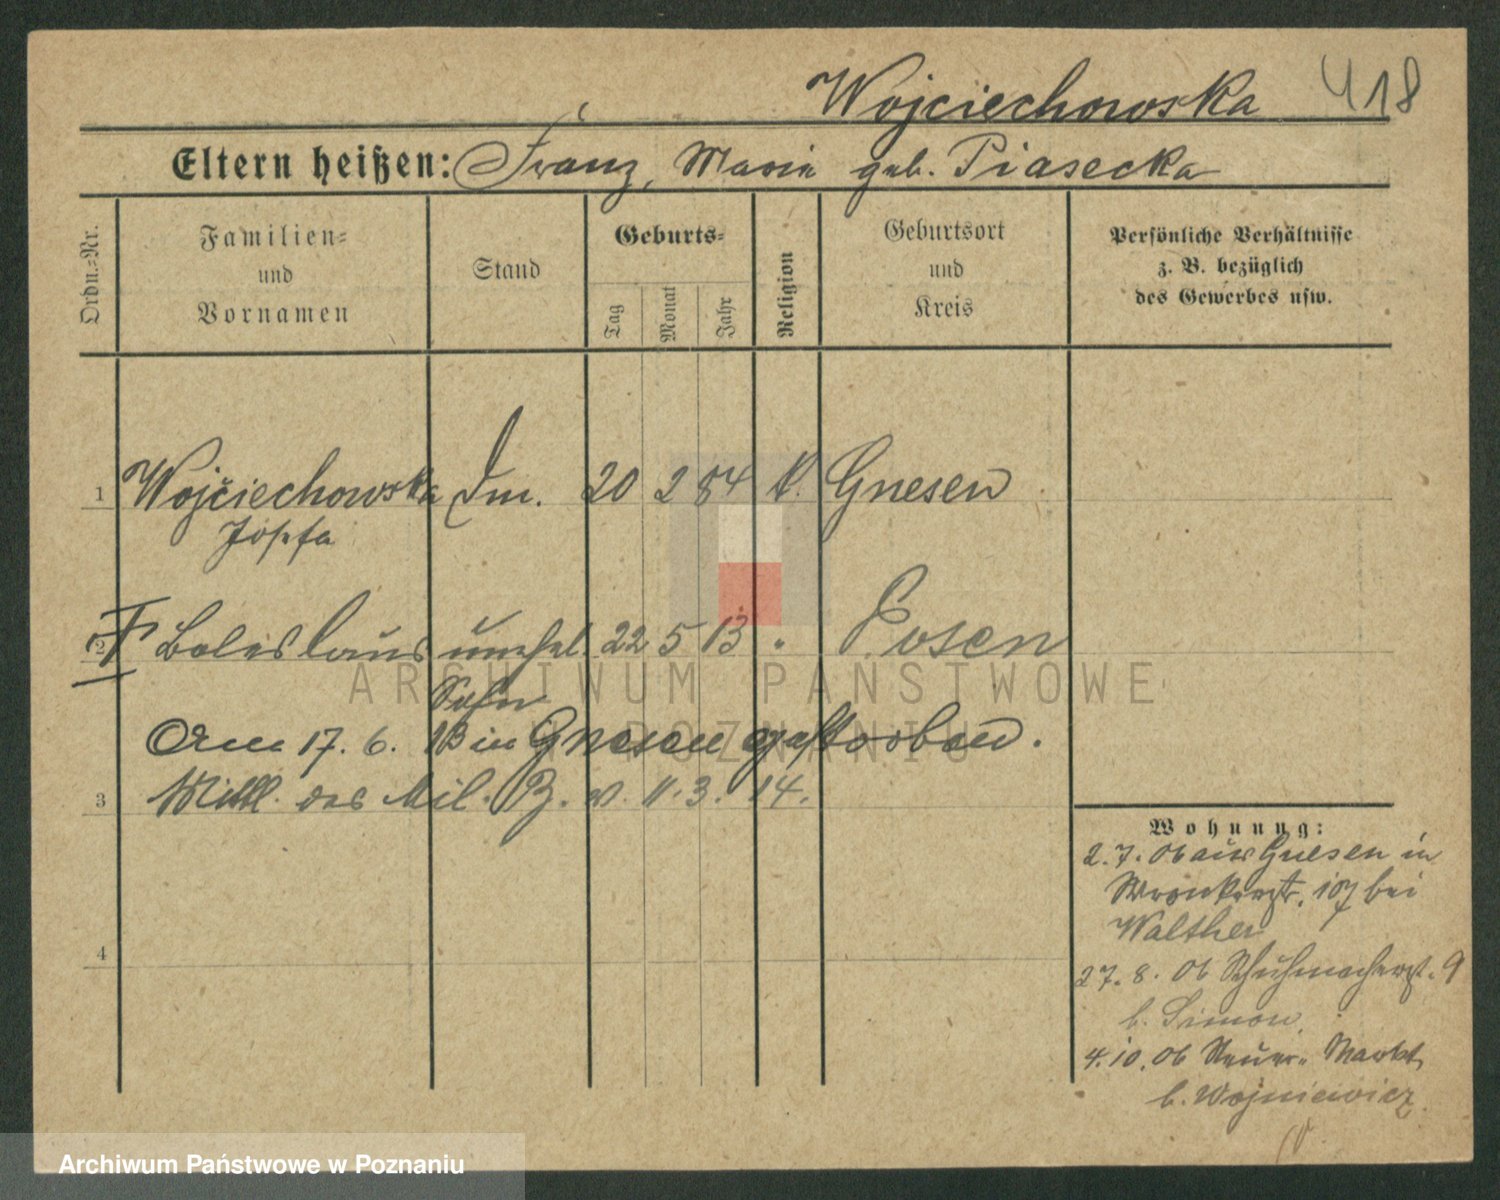 Wojciechowska 418
Eltern heißen: Franz, Maria geb. Piasecka
Ordn.=Nr.
Familien=
und
Vornamen
Stand
Geburts=
Tag
Monat
Jahr
Religion
Geburtsort
und
Kreis
Persönliche Verhältnisse
z. B. bezüglich
des Gewerbes usw.
1 Wojciechowska Dm. 20 2 84 K. Gnesen
Josefa
2 Boleslaus unehel. 22 5 13 " Posen
Sohn
Am 17. 6. 13 in Gnesen gestorben.
3 Mittl. des Mil. B. v. 11. 3. 14.
4
Wohnung:
2. 7. 06 aus Gnesen in
Wronkerstr. 107 bei
Walther
27. 8. 06 Schuhmacherstr. 9
b. Simon.
4. 10. 06 Neuer Markt
b. Wojniewicz
ARCHIWUM PAŃSTWOWE
W POZNANIU
Archiwum Państwowe w Poznaniu